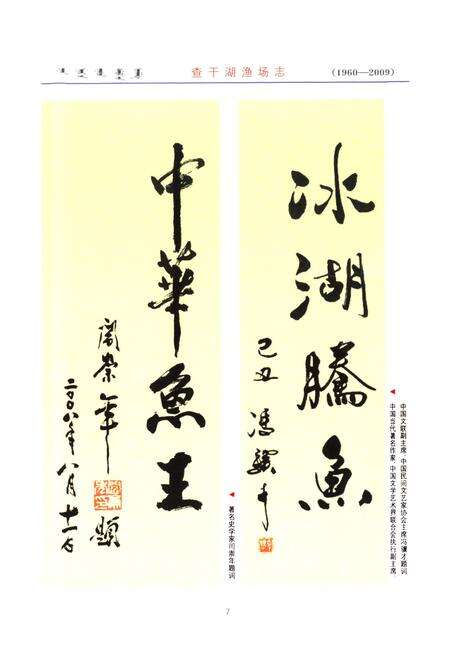 查干湖渔场志
(1960—2009)
冰湖腾鱼
己丑 冯骥才
中国文联副主席 中国民间文艺家协会主席冯骥才题词
中国当代著名作家 中国文学艺术界联合会执行副主席
中华鱼王
阎崇年 题
二〇〇八年八月十一日
著名史学家阎崇年题词
7